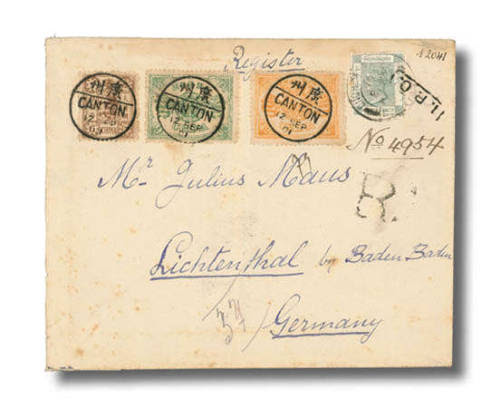 Register
№ 2041
廣州
CANTON
12 SEP
01
廣州
CANTON
12 SEP
01
廣州
CANTON
12 SEP
01
I.P.O.
No 4954
R
Mr Julius Maus
Lichtenthal by Baden Baden
37
Germany